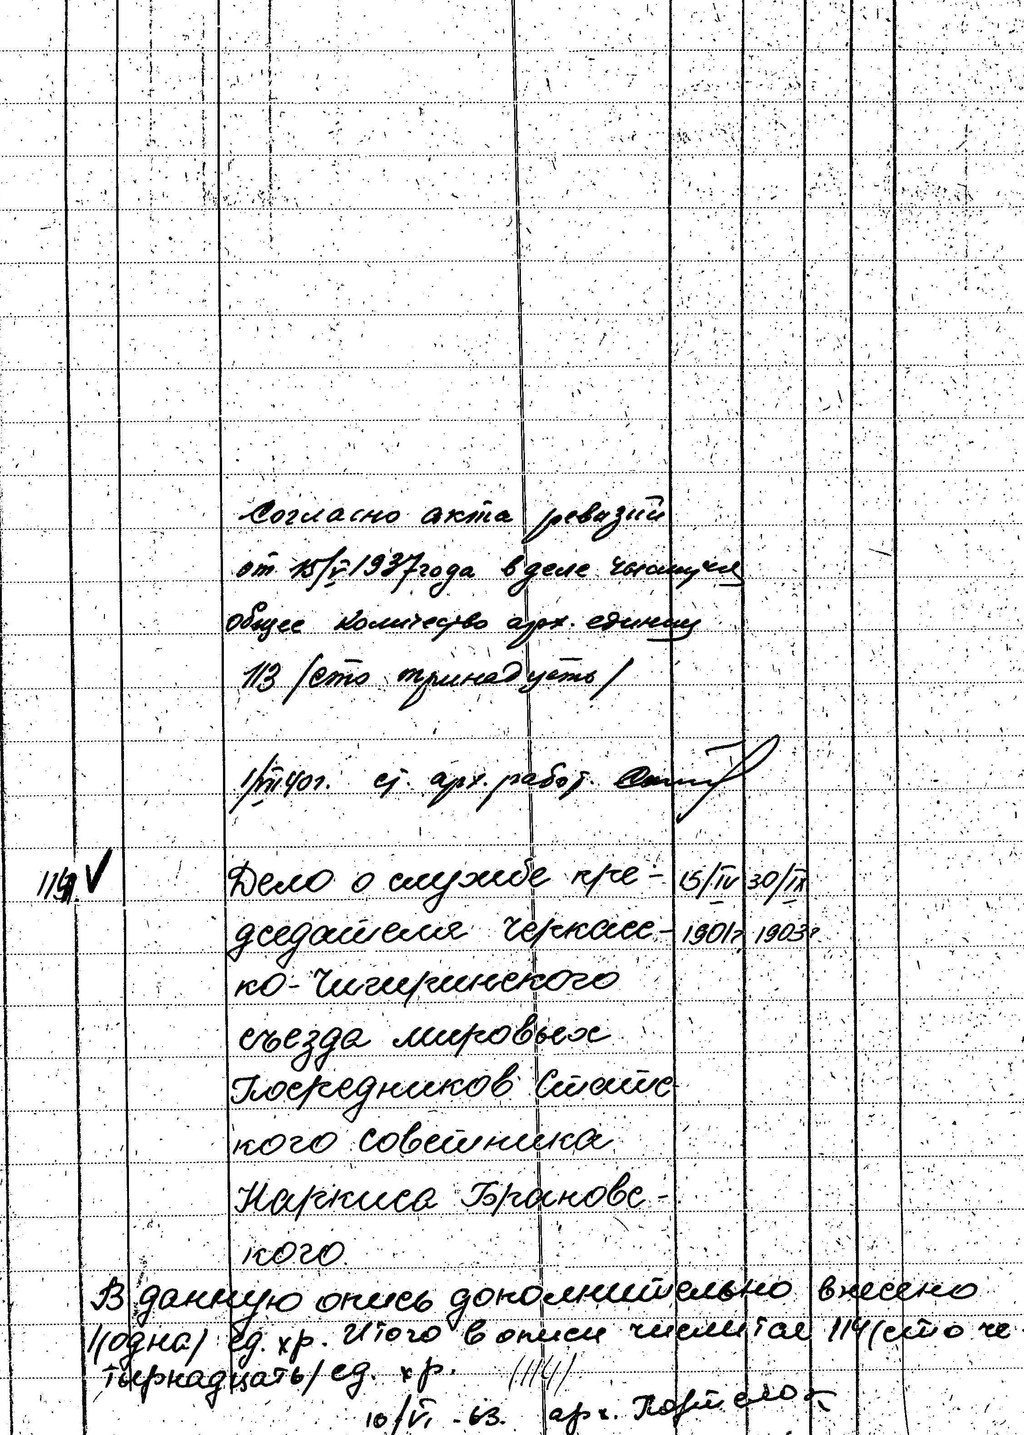 Согласно акта ревизии
от 15/V 1937 года в деле числится
общее количество арх. единиц
113 /сто тринадцать/
1/VII 40г. ст. арх. работ.
114. V Дело о службе пре- 15/IV 30/IX
дседателя Черкасс- 1901г. 1903г
ко-Чигиринского
съезда мировых
Посредников Статс-
кого советника
Наркиса Брановс-
кого.
В данную опись дополнительно внесено
1(одна) ед. хр. Итого в описи числится 114 (сто че-
тырнадцать) ед. хр. /114/
10/VI - 63. арх.